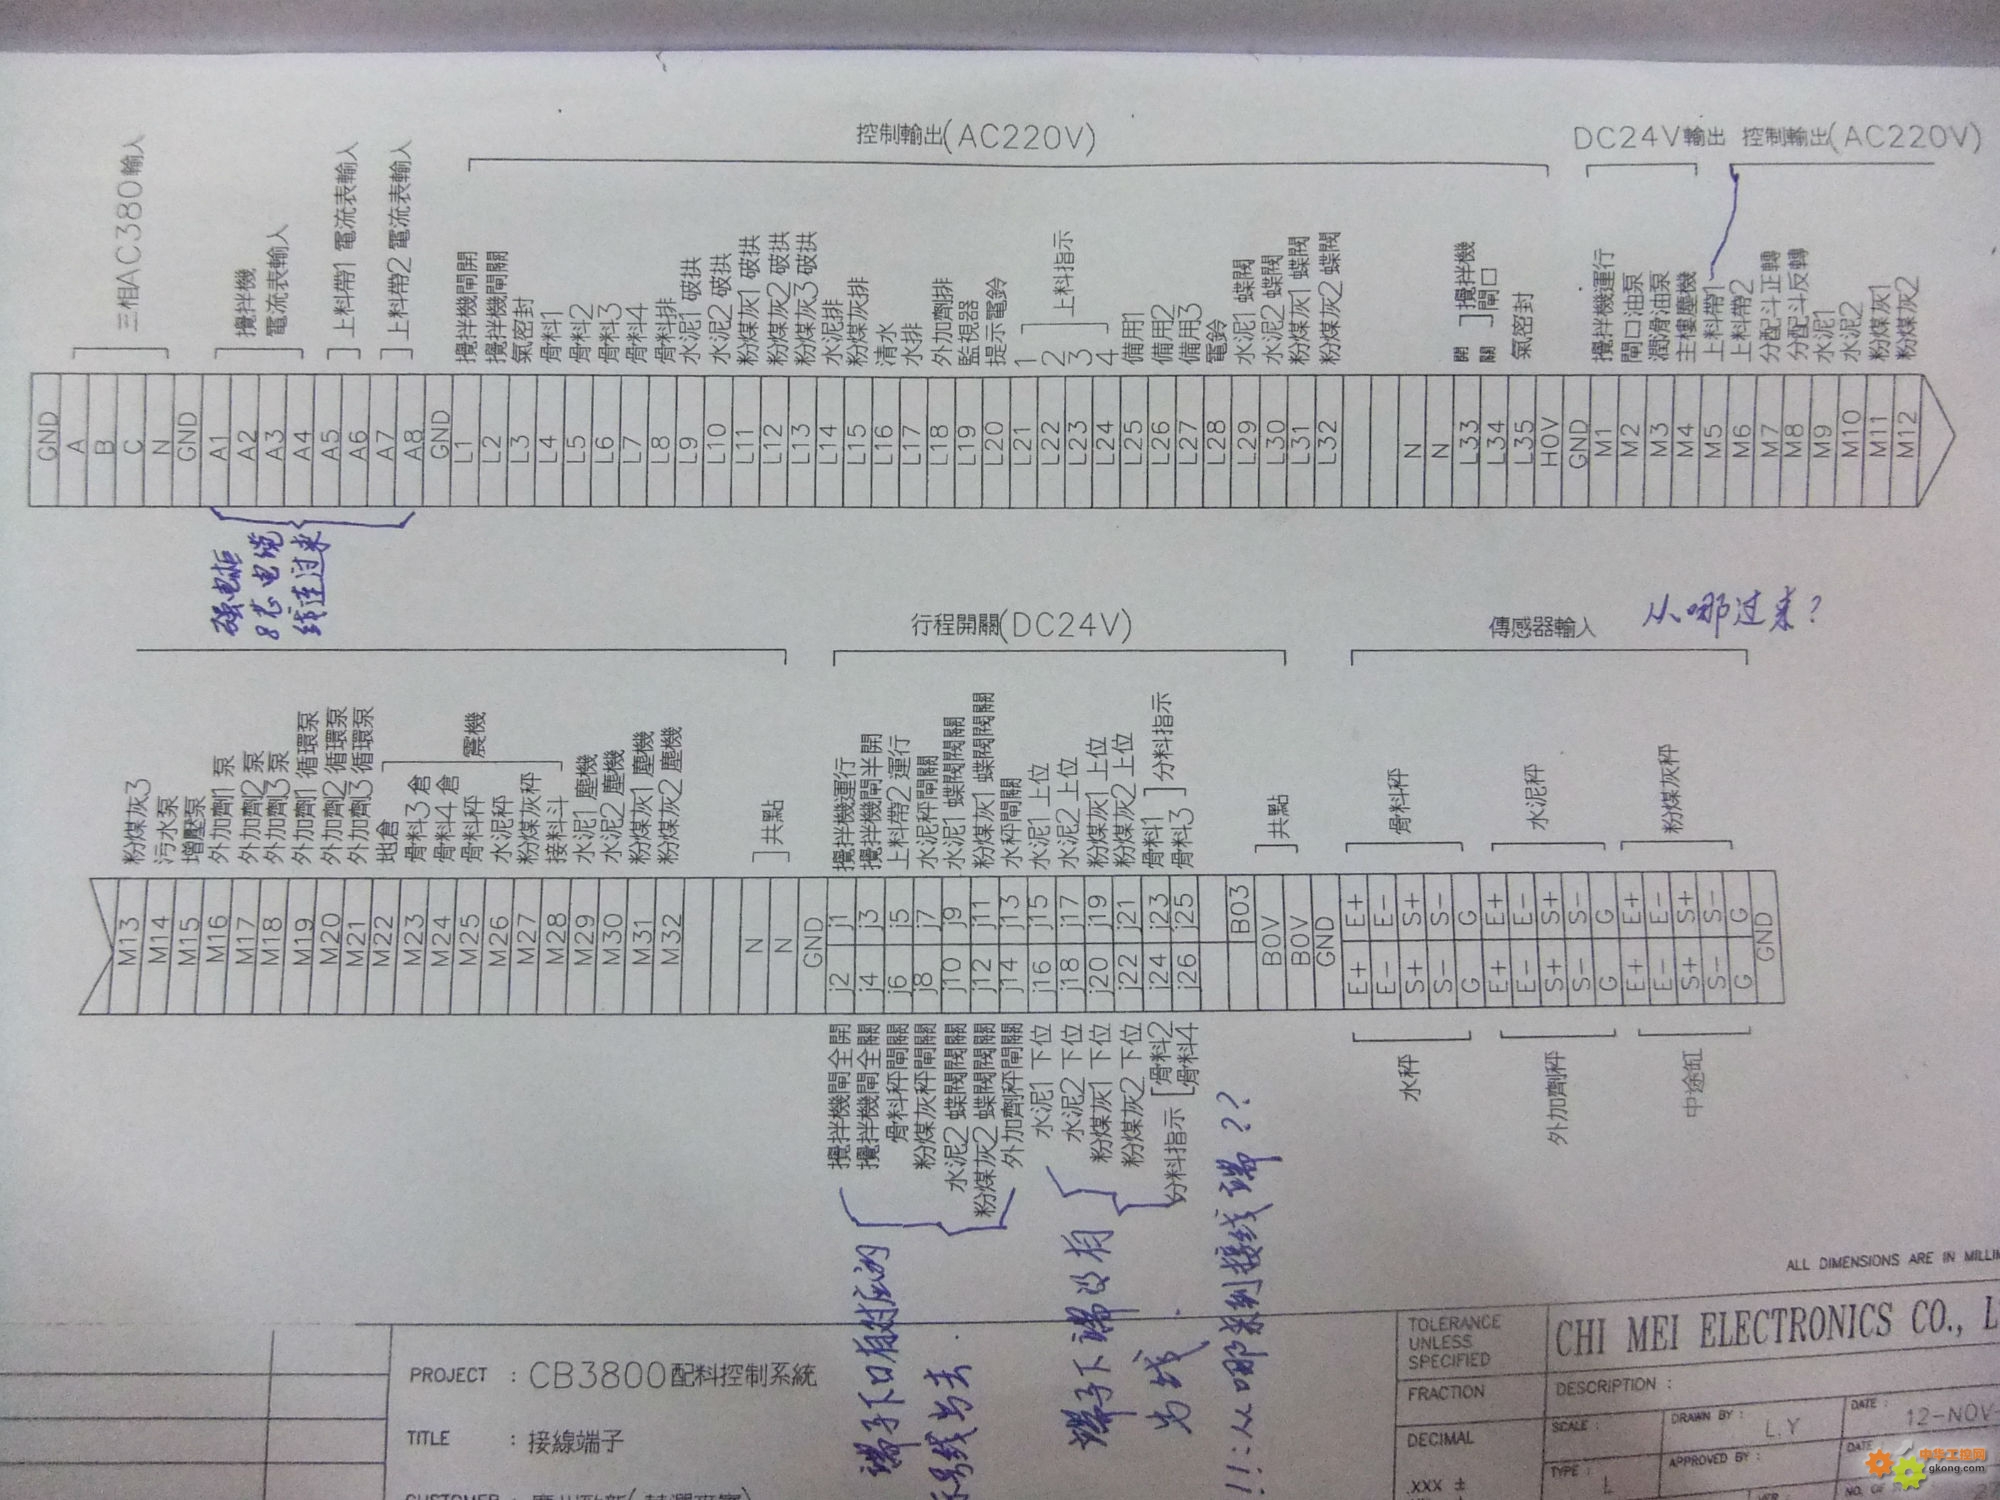 三相AC380輸入
攪拌機
電流表輸入
上料帶1 電流表輸入
上料帶2 電流表輸入
控制輸出(AC220V)
DC24V輸出
控制輸出(AC220V)
攪拌機閘開
攪拌機閘關
氣密封
骨料1
骨料2
骨料3
骨料4
骨料排
水泥1 破拱
水泥2 破拱
粉煤灰1 破拱
粉煤灰2 破拱
粉煤灰3 破拱
水泥排
粉煤灰排
清水
水排
外加劑排
監視器
提示電鈴
1
2
3
4
上料指示
備用1
備用2
備用3
電鈴
水泥1 蝶閥
水泥2 蝶閥
粉煤灰1 蝶閥
粉煤灰2 蝶閥
開
關
攪拌機
閘口
氣密封
攪拌機運行
閘口油泵
潤滑油泵
主樓塵機
上料帶1
上料帶2
分配斗正轉
分配斗反轉
水泥1
水泥2
粉煤灰1
粉煤灰2
GND
A
B
C
N
GND
A1
A2
A3
A4
A5
A6
A7
A8
GND
L1
L2
L3
L4
L5
L6
L7
L8
L9
L10
L11
L12
L13
L14
L15
L16
L17
L18
L19
L20
L21
L22
L23
L24
L25
L26
L27
L28
L29
L30
L31
L32
N
N
L33
L34
L35
H0V
GND
M1
M2
M3
M4
M5
M6
M7
M8
M9
M10
M11
M12
强电柜
8芯电缆
线连过来
行程開關(DC24V)
傳感器輸入
从哪过来?
粉煤灰3
污水泵
增壓泵
外加劑1 泵
外加劑2 泵
外加劑3 泵
外加劑1 循環泵
外加劑2 循環泵
外加劑3 循環泵
地倉
骨料3 倉
骨料4 倉
骨料秤
水泥秤
粉煤灰秤
接料斗
震機
水泥1 塵機
水泥2 塵機
粉煤灰1 塵機
粉煤灰2 塵機
共點
攪拌機運行
攪拌機閘半開
上料帶2 運行
水泥秤閘關
水泥1 蝶閥閥關
粉煤灰1 蝶閥閥關
水秤閘關
水泥1 上位
水泥2 上位
粉煤灰1 上位
粉煤灰2 上位
骨料1
骨料3
分料指示
共點
骨料秤
水泥秤
粉煤灰秤
M13
M14
M15
M16
M17
M18
M19
M20
M21
M22
M23
M24
M25
M26
M27
M28
M29
M30
M31
M32
N
N
GND
j2 j1
j4 j3
j6 j5
j8 j7
j10 j9
j12 j11
j14 j13
j16 j15
j18 j17
j20 j19
j22 j21
j24 j23
j26 j25
B03
B0V
B0V
GND
E+ E+
E- E-
S+ S+
S- S-
G G
E+ E+
E- E-
S+ S+
S- S-
G G
E+ E+
E- E-
S+ S+
S- S-
G G
GND
攪拌機閘全開
攪拌機閘全關
骨料秤閘關
粉煤灰秤閘關
水泥2 蝶閥閥關
粉煤灰2 蝶閥閥關
外加劑秤閘關
水泥1 下位
水泥2 下位
粉煤灰1 下位
粉煤灰2 下位
分料指示
骨料2
骨料4
水秤
外加劑秤
中途缸
端子下口有对应的
号线出去
端子下端没有
出线
!!:从哪来到接线端??
ALL DIMENSIONS ARE IN MILLIM
PROJECT : CB3800配料控制系統
TITLE : 接線端子
CUSTOMER :
TOLERANCE
UNLESS
SPECIFIED
FRACTION
DECIMAL
.XXX ±
CHI MEI ELECTRONICS CO., L
DESCRIPTION :
SCALE :
DRAWN BY : L.Y
DATE : 12-NOV-
TYPE : L
APPROVED BY :
DATE
NO. OF
中华工控网
gkong.com